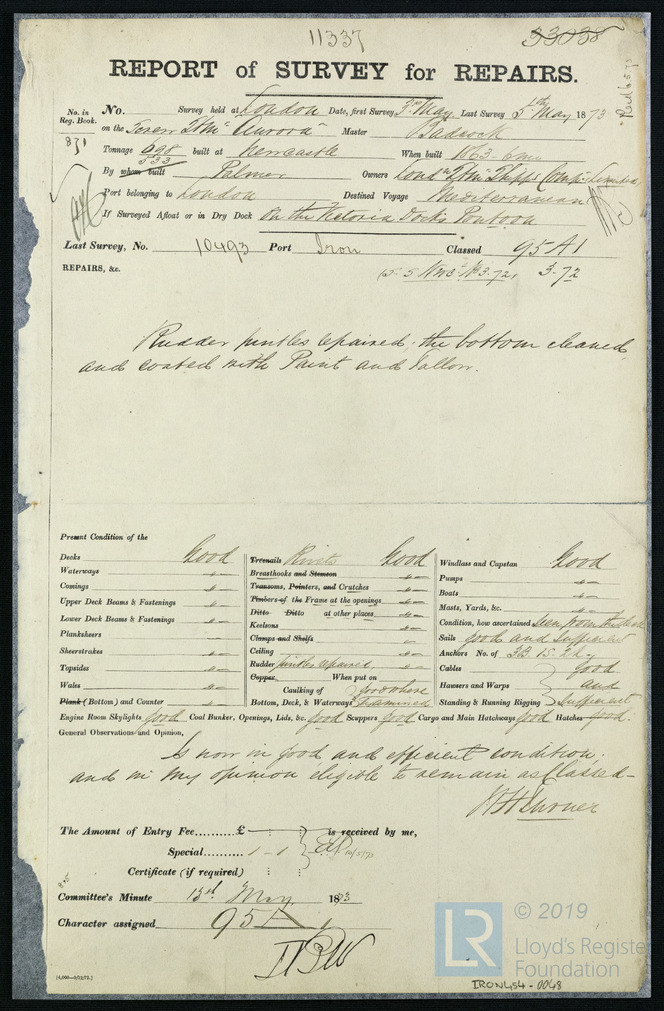 11337
33038
REPORT of SURVEY for REPAIRS.
No. in Reg. Book. 831
No. Survey held at London Date, first Survey 3rd May Last Survey 5th May 1873
Recd 6.5.73
on the Screw Str "Aurora" Master Badcock
Tonnage 698 built at Newcastle When built 1863-6mo
533
By whom built Palmer Owners Lond Stm Shipp Compy Limited
Port belonging to London Destined Voyage Mediterranean
If Surveyed Afloat or in Dry Dock On the Victoria Docks Pontoon
Last Survey, No. 10493 Port Iron Classed 95 A1
REPAIRS, &c. 3.72
Rudder pintles repaired: the bottom cleaned
and coated with Paint and Tallow.
Present Condition of the
Decks Good
Waterways "
Comings "
Upper Deck Beams & Fastenings "
Lower Deck Beams & Fastenings "
Planksheers "
Sheerstrakes "
Topsides "
Wales "
Plank (Bottom) and Counter "
Treenails Rivets Good
Breasthooks and Stemson "
Transoms, Pointers, and Crutches "
Timbers of the Frame at the openings "
Ditto Ditto at other places "
Keelsons "
Clamps and Shelfs "
Ceiling "
Rudder pintles repaired "
Copper When put on
Caulking of Bottom, Deck, & Waterways good where Examined
Windlass and Capstan Good
Pumps "
Boats "
Masts, Yards, &c. "
Condition, how ascertained Seen from the deck
Sails good and Sufficient
Anchors No. of 3B. 1S. 2K.
Cables good
Hawsers and Warps and
Standing & Running Rigging Sufficient
Engine Room Skylights good Coal Bunker, Openings, Lids, &c. good Scuppers good Cargo and Main Hatchways good Hatches good.
General Observations and Opinion,
Is now in good and efficient condition;
and in my opinion eligible to remain as Classed-
The Amount of Entry Fee.......... £ - : : is received by me,
Special........... 1 - 1
Certificate (if required) : :
Committee's Minute 13th May 1873
Character assigned 95 A 1
[4,000—9/12/72.]
LR
© 2019
Lloyd's Register
Foundation
IRON454-0048